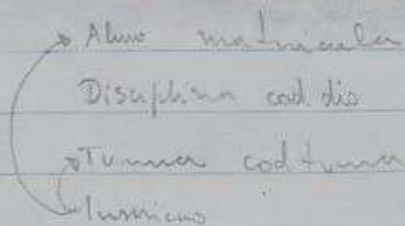 Aluno matricula
Disciplina cod. dis
Turma cod turma
Inscricao